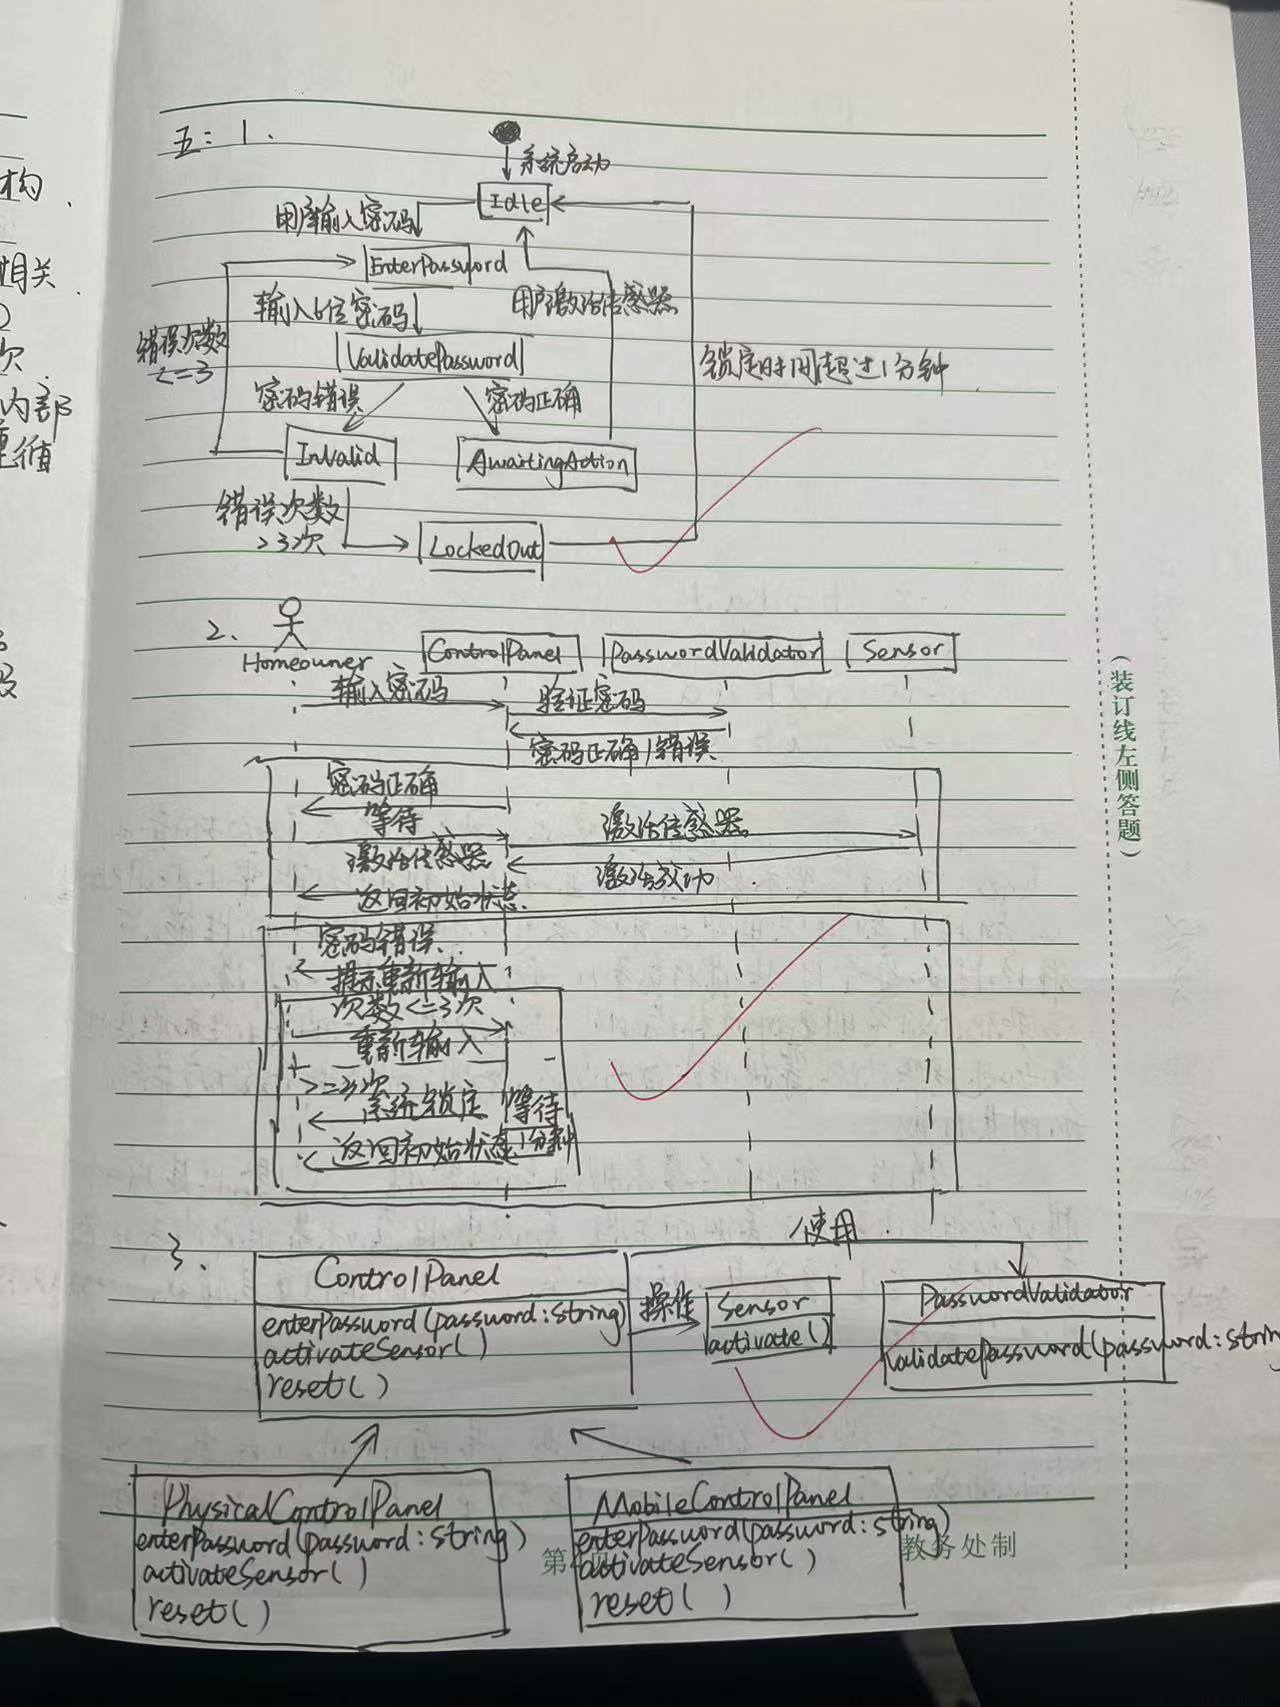 构.
相关
次
内部
五: 1.
系统启动
Idle
用户输入密码
EnterPassword
输入6位密码
用户激活传感器
错误次数
<=3
ValidatePassword
锁定时间超过1分钟
密码错误
密码正确
Invalid
AwaitingAction
错误次数
>3次
LockedOut
2.
Homeowner
ControlPanel
PasswordValidator
Sensor
输入密码
验证密码
密码正确/错误
密码正确
等待
激活传感器
激活传感器
激活成功
返回初始状态
密码错误
提示重新输入
次数<=3次
重新输入
>=3次
系统锁定
等待
返回初始状态
1分钟
3.
使用
ControlPanel
enterPassword(password:string)
activateSensor()
reset()
操作
Sensor
activate()
PasswordValidator
validatePassword(password:string
PhysicalControlPanel
enterPassword(password:string)
activateSensor()
reset()
MobileControlPanel
enterPassword(password:string)
activateSensor()
reset()
第
教务处制
(装订线左侧答题)